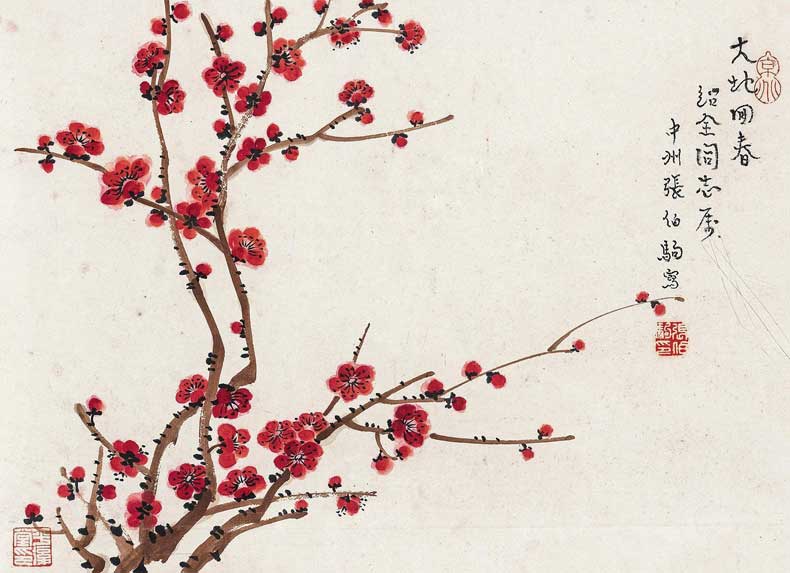 大地回春
绍金同志属
中州張伯駒寫
張伯駒印
京兆